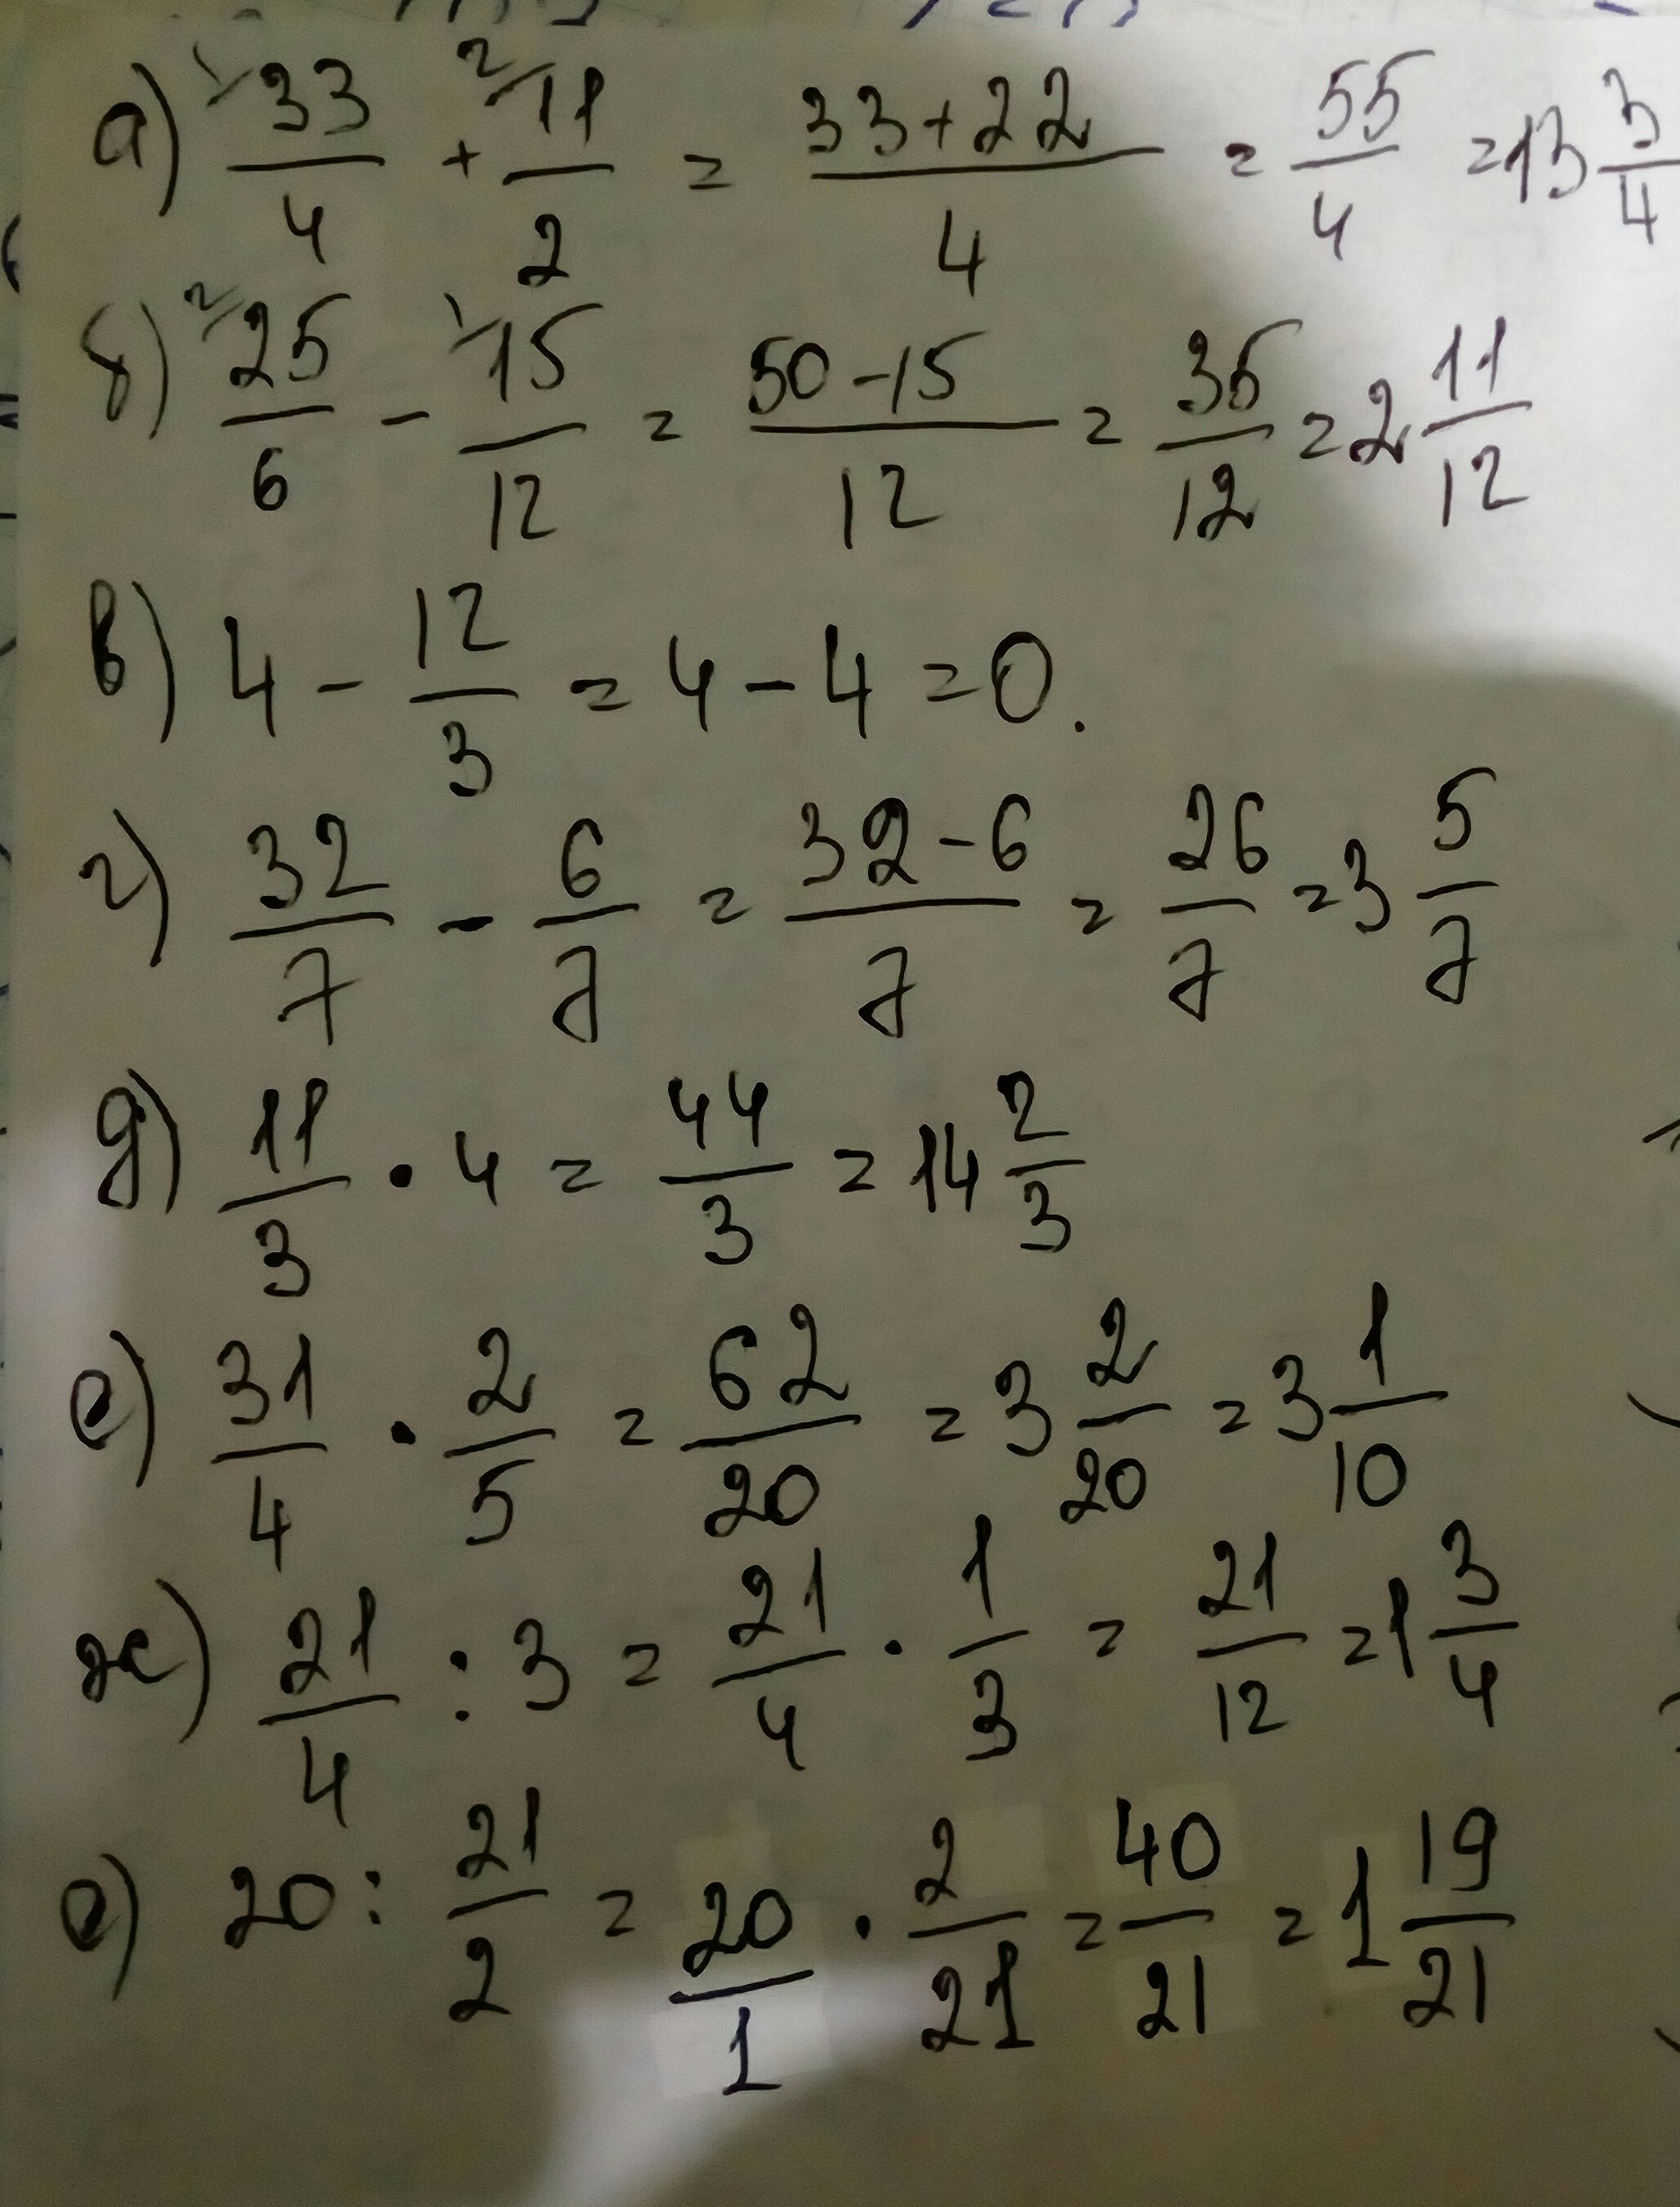 а) 1/33/4 + 2/11/2 = 33+22/4 = 55/4 = 13 3/4
б) 2/25/6 - 1/15/12 = 50-15/12 = 35/12 = 2 11/12
в) 4 - 12/3 = 4 - 4 = 0.
г) 32/7 - 6/7 = 32-6/7 = 26/7 = 3 5/7
д) 11/3 · 4 = 44/3 = 14 2/3
е) 31/4 · 2/5 = 62/20 = 3 2/20 = 3 1/10
ж) 21/4 : 3 = 21/4 · 1/3 = 21/12 = 1 3/4
е) 20 : 21/2 = 20/1 · 2/21 = 40/21 = 1 19/21